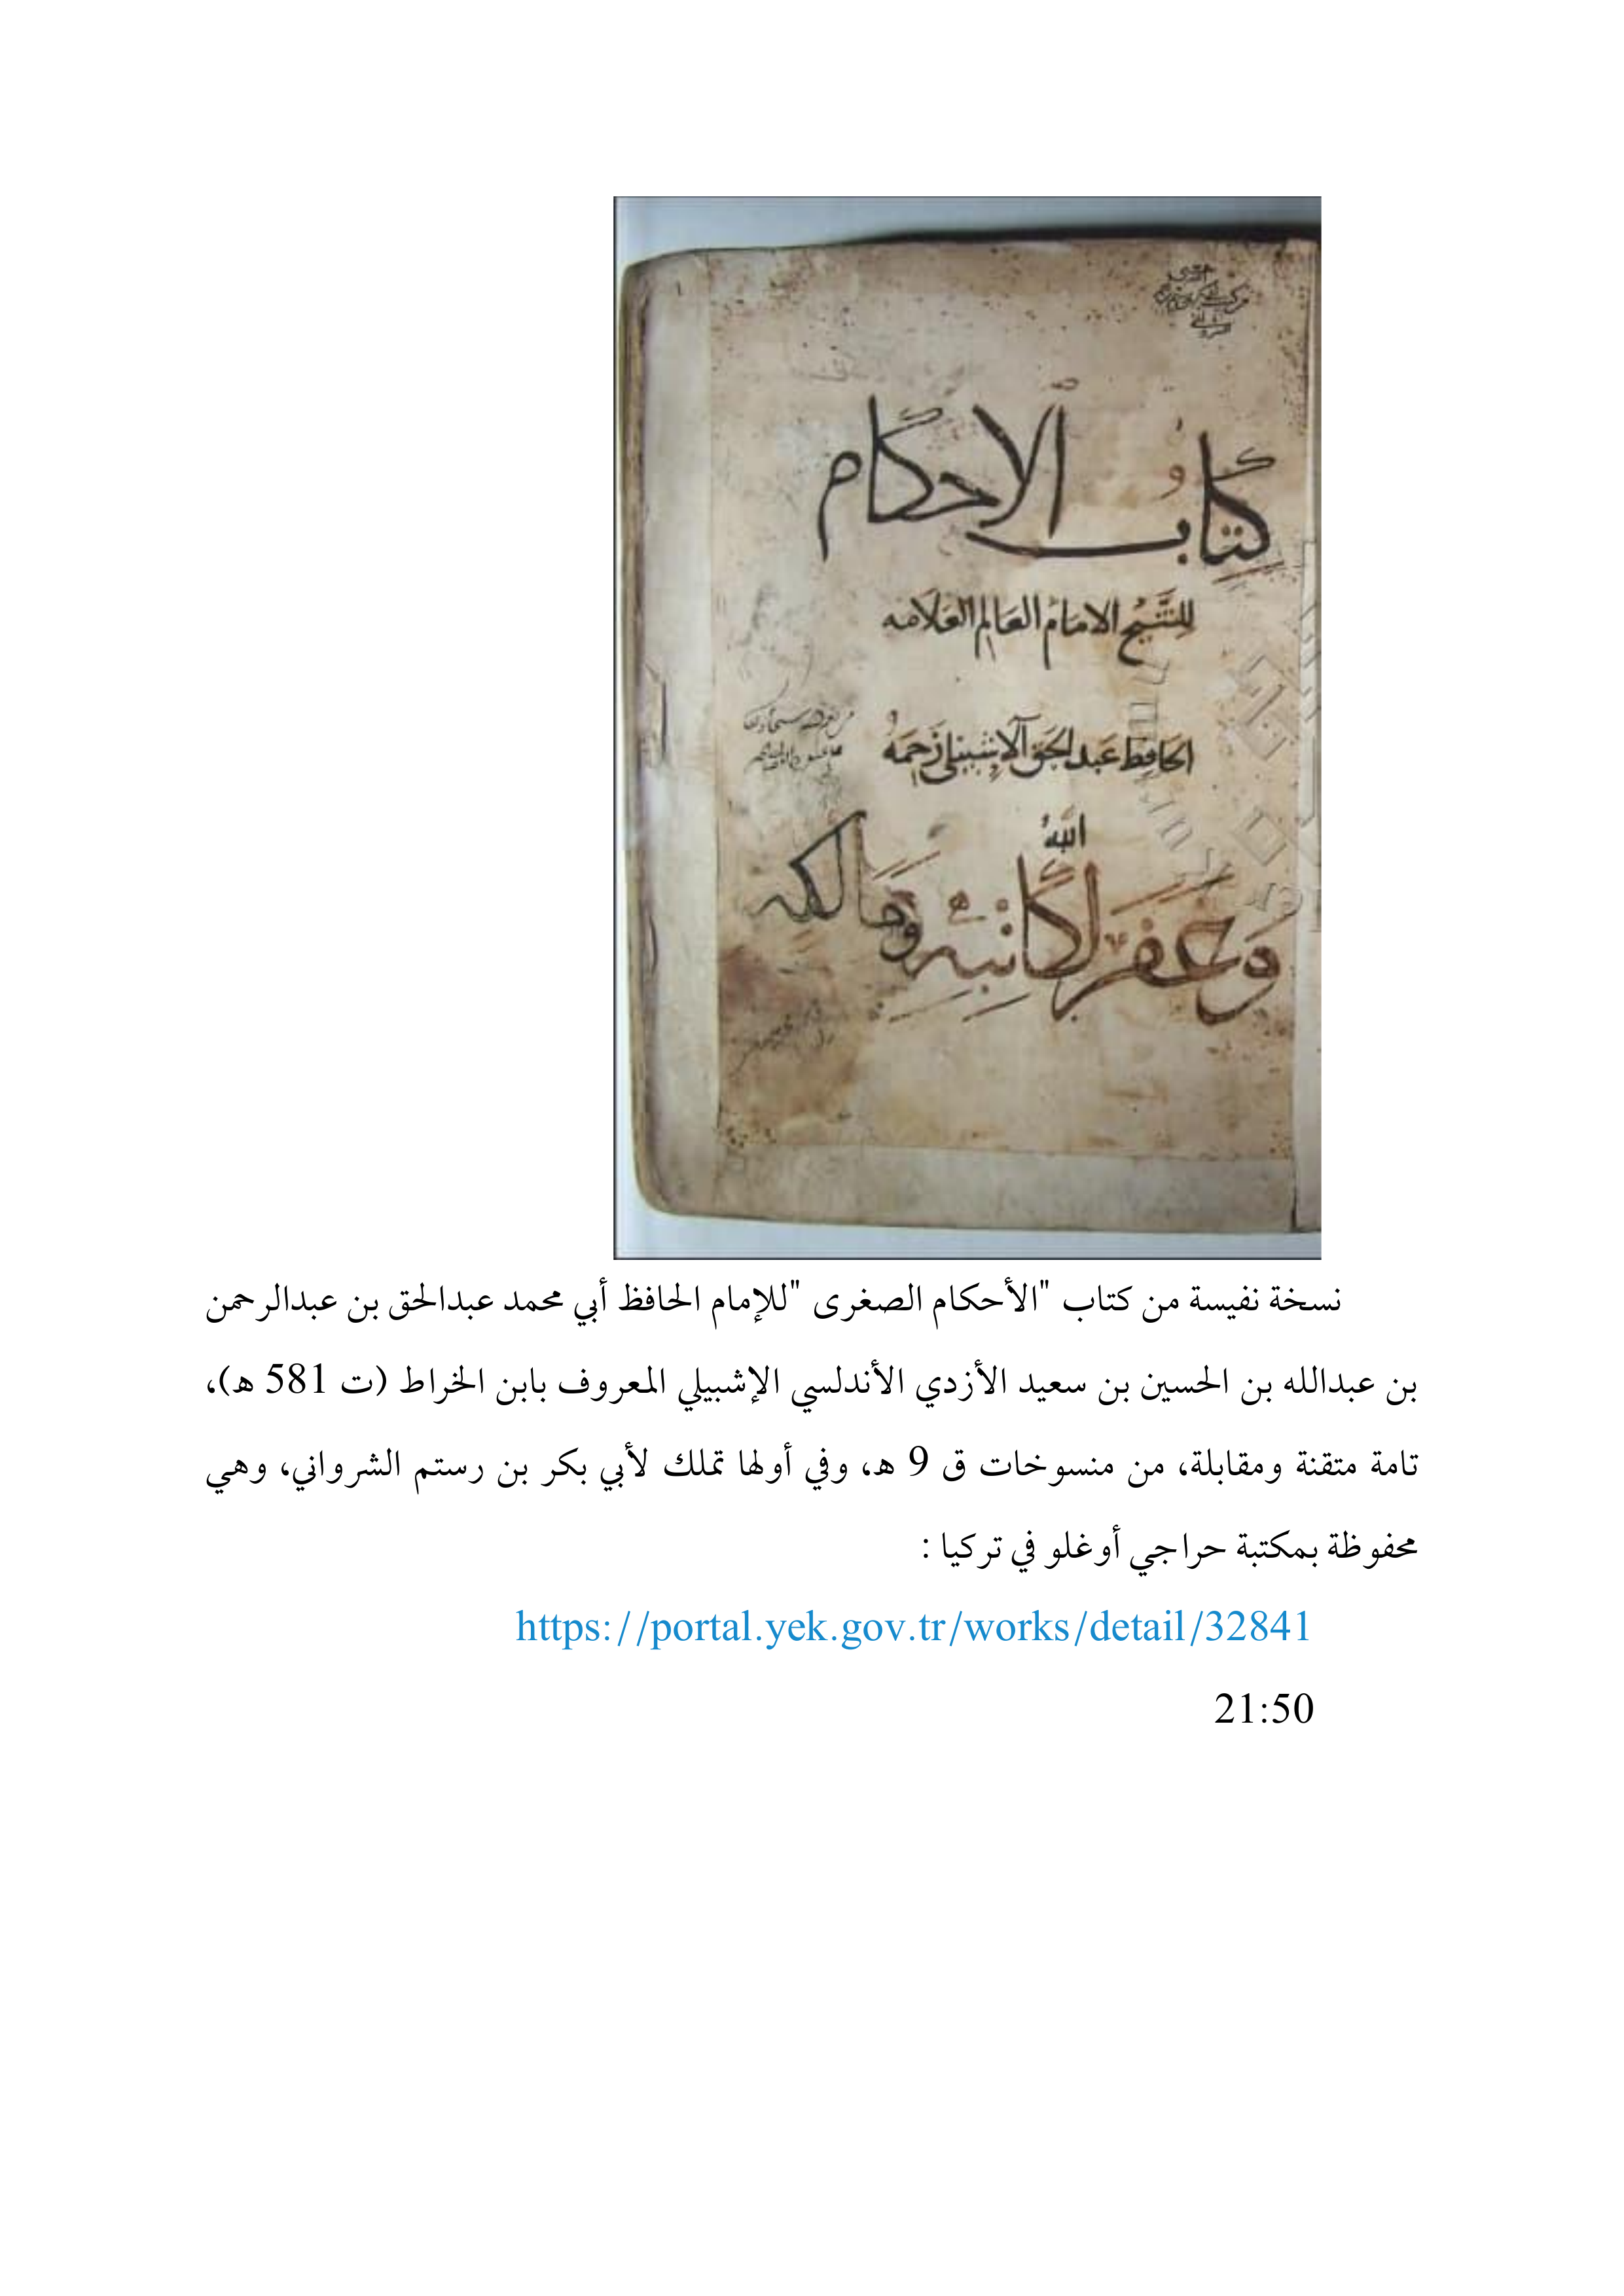 كتاب الاحكام
للشيخ الامام العالم العلامه
الحافظ عبد الحق الاشبيلي رحمه
الله
وغفر لكاتبه ومالكه
نسخة نفيسة من كتاب "الأحكام الصغرى "للإمام الحافظ أبي محمد عبدالحق بن عبدالرحمن
بن عبدالله بن الحسين بن سعيد الأزدي الأندلسي الإشبيلي المعروف بابن الخراط (ت 581 ه)،
تامة متقنة ومقابلة، من منسوخات ق 9 ه، وفي أولها تملك لأبي بكر بن رستم الشرواني، وهي
محفوظة بمكتبة حراجي أوغلو في تركيا :
https://portal.yek.gov.tr/works/detail/32841
21:50